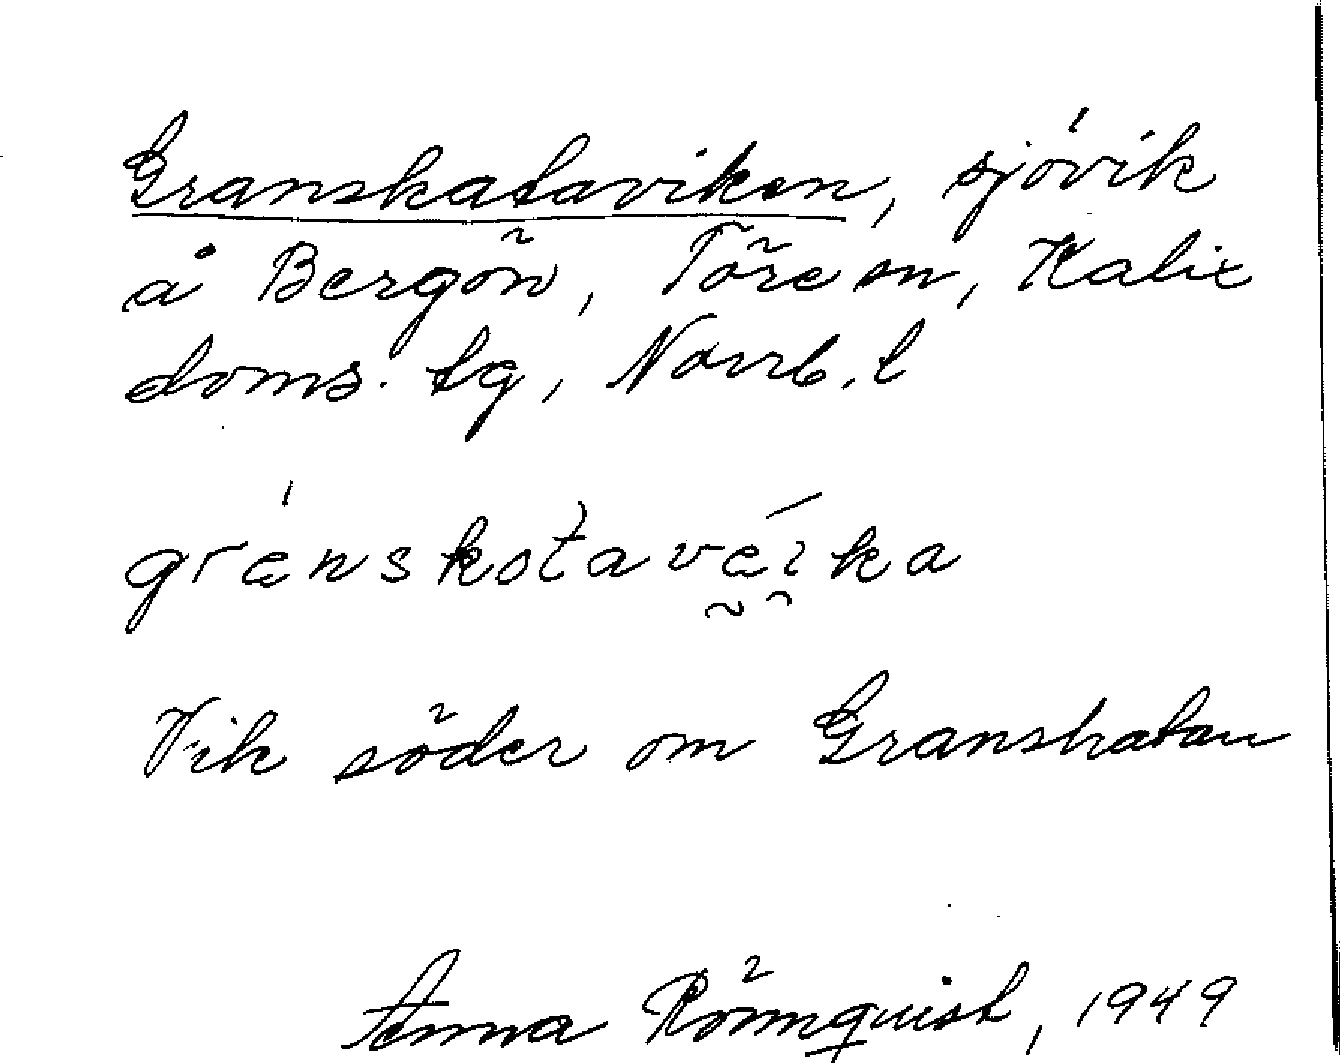 Granskataviken, sjövik
å Bergön, Töre sn, Kalix
doms. tg, Norrb. l
Vik söder om Granskatan
Anna Rönnquist, 1949